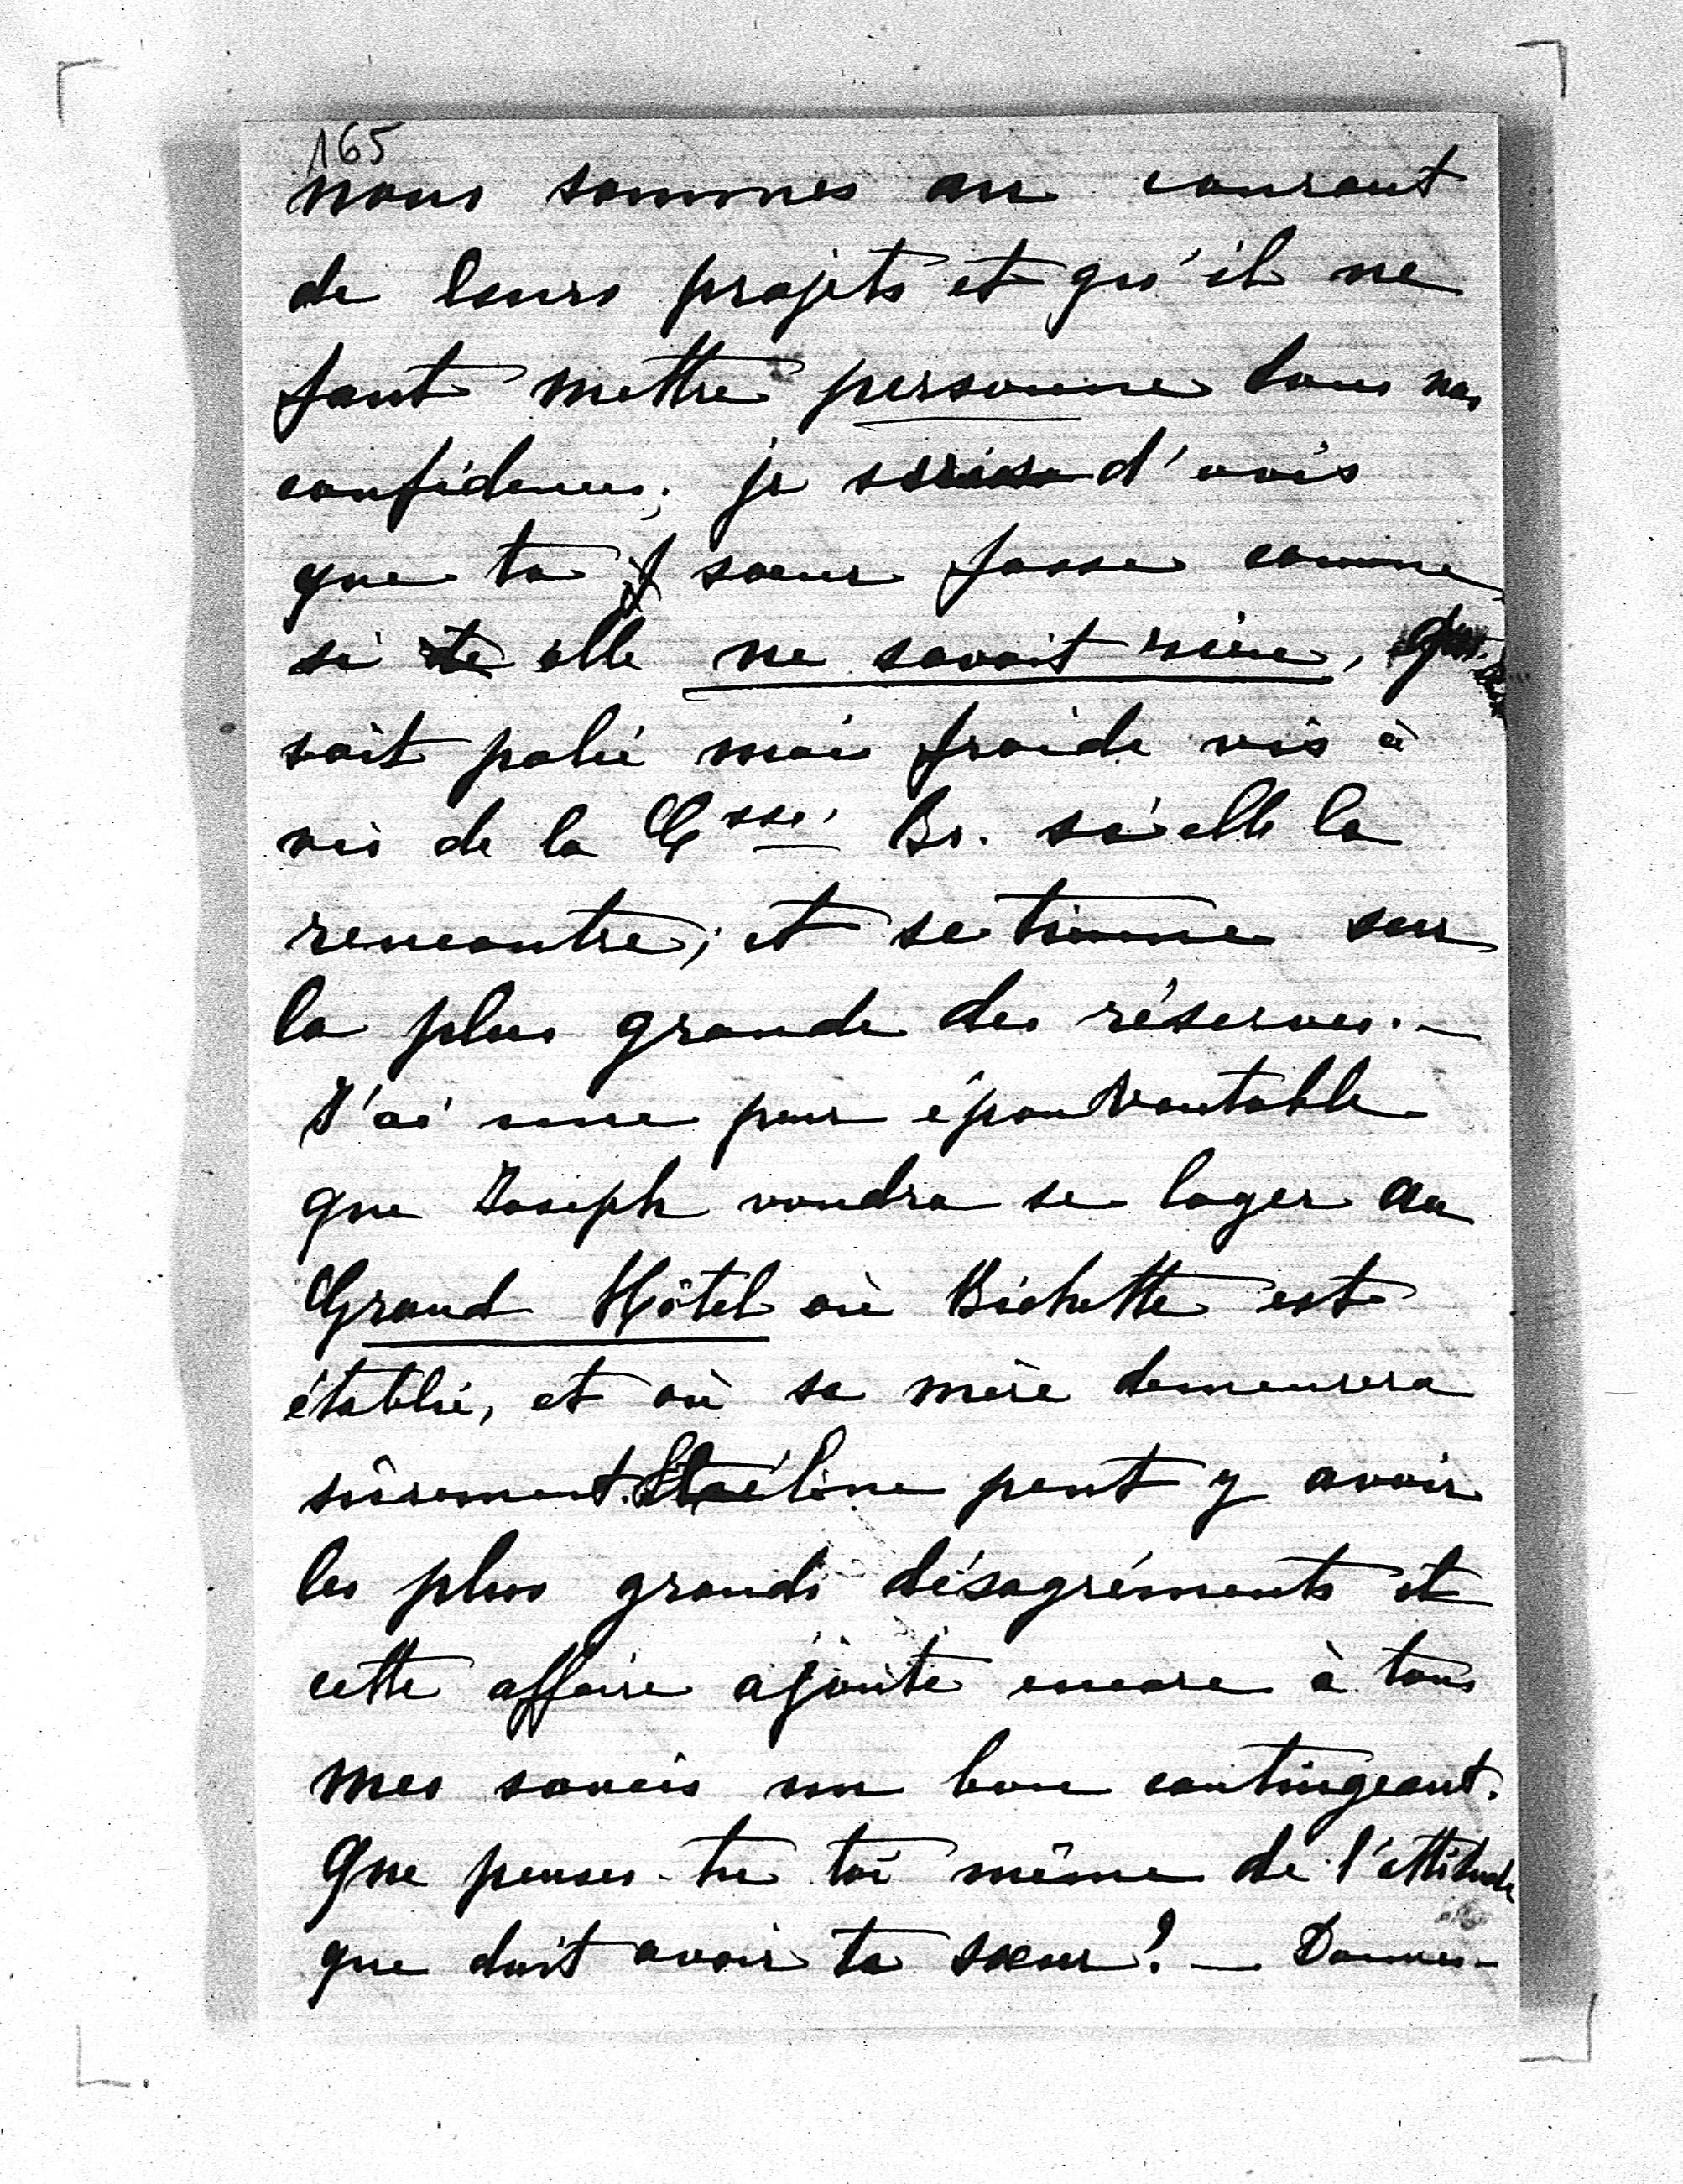 165
nous sommes au courant
de leurs projets et qu'il ne
faut mettre personne dans nos
confidences; je serais d'avis
que ta sœur fasse comme
si elle ne savait rien,
soit polie mais froide vis à
vis de la Csse Br. si elle la
rencontre; et se tienne sur
la plus grande des réserves. —
J'ai une peur épouvantable
que Joseph voudra se loger au
Grand Hôtel où Bichette est
établie, et où sa mère demeurera
sûrement. line peut y avoir
les plus grands désagréments et
cette affaire ajoute encore à tous
mes soucis un bon contingeant.
Que penses-tu toi même de l'attitude
que doit avoir ta sœur? — Donnes-